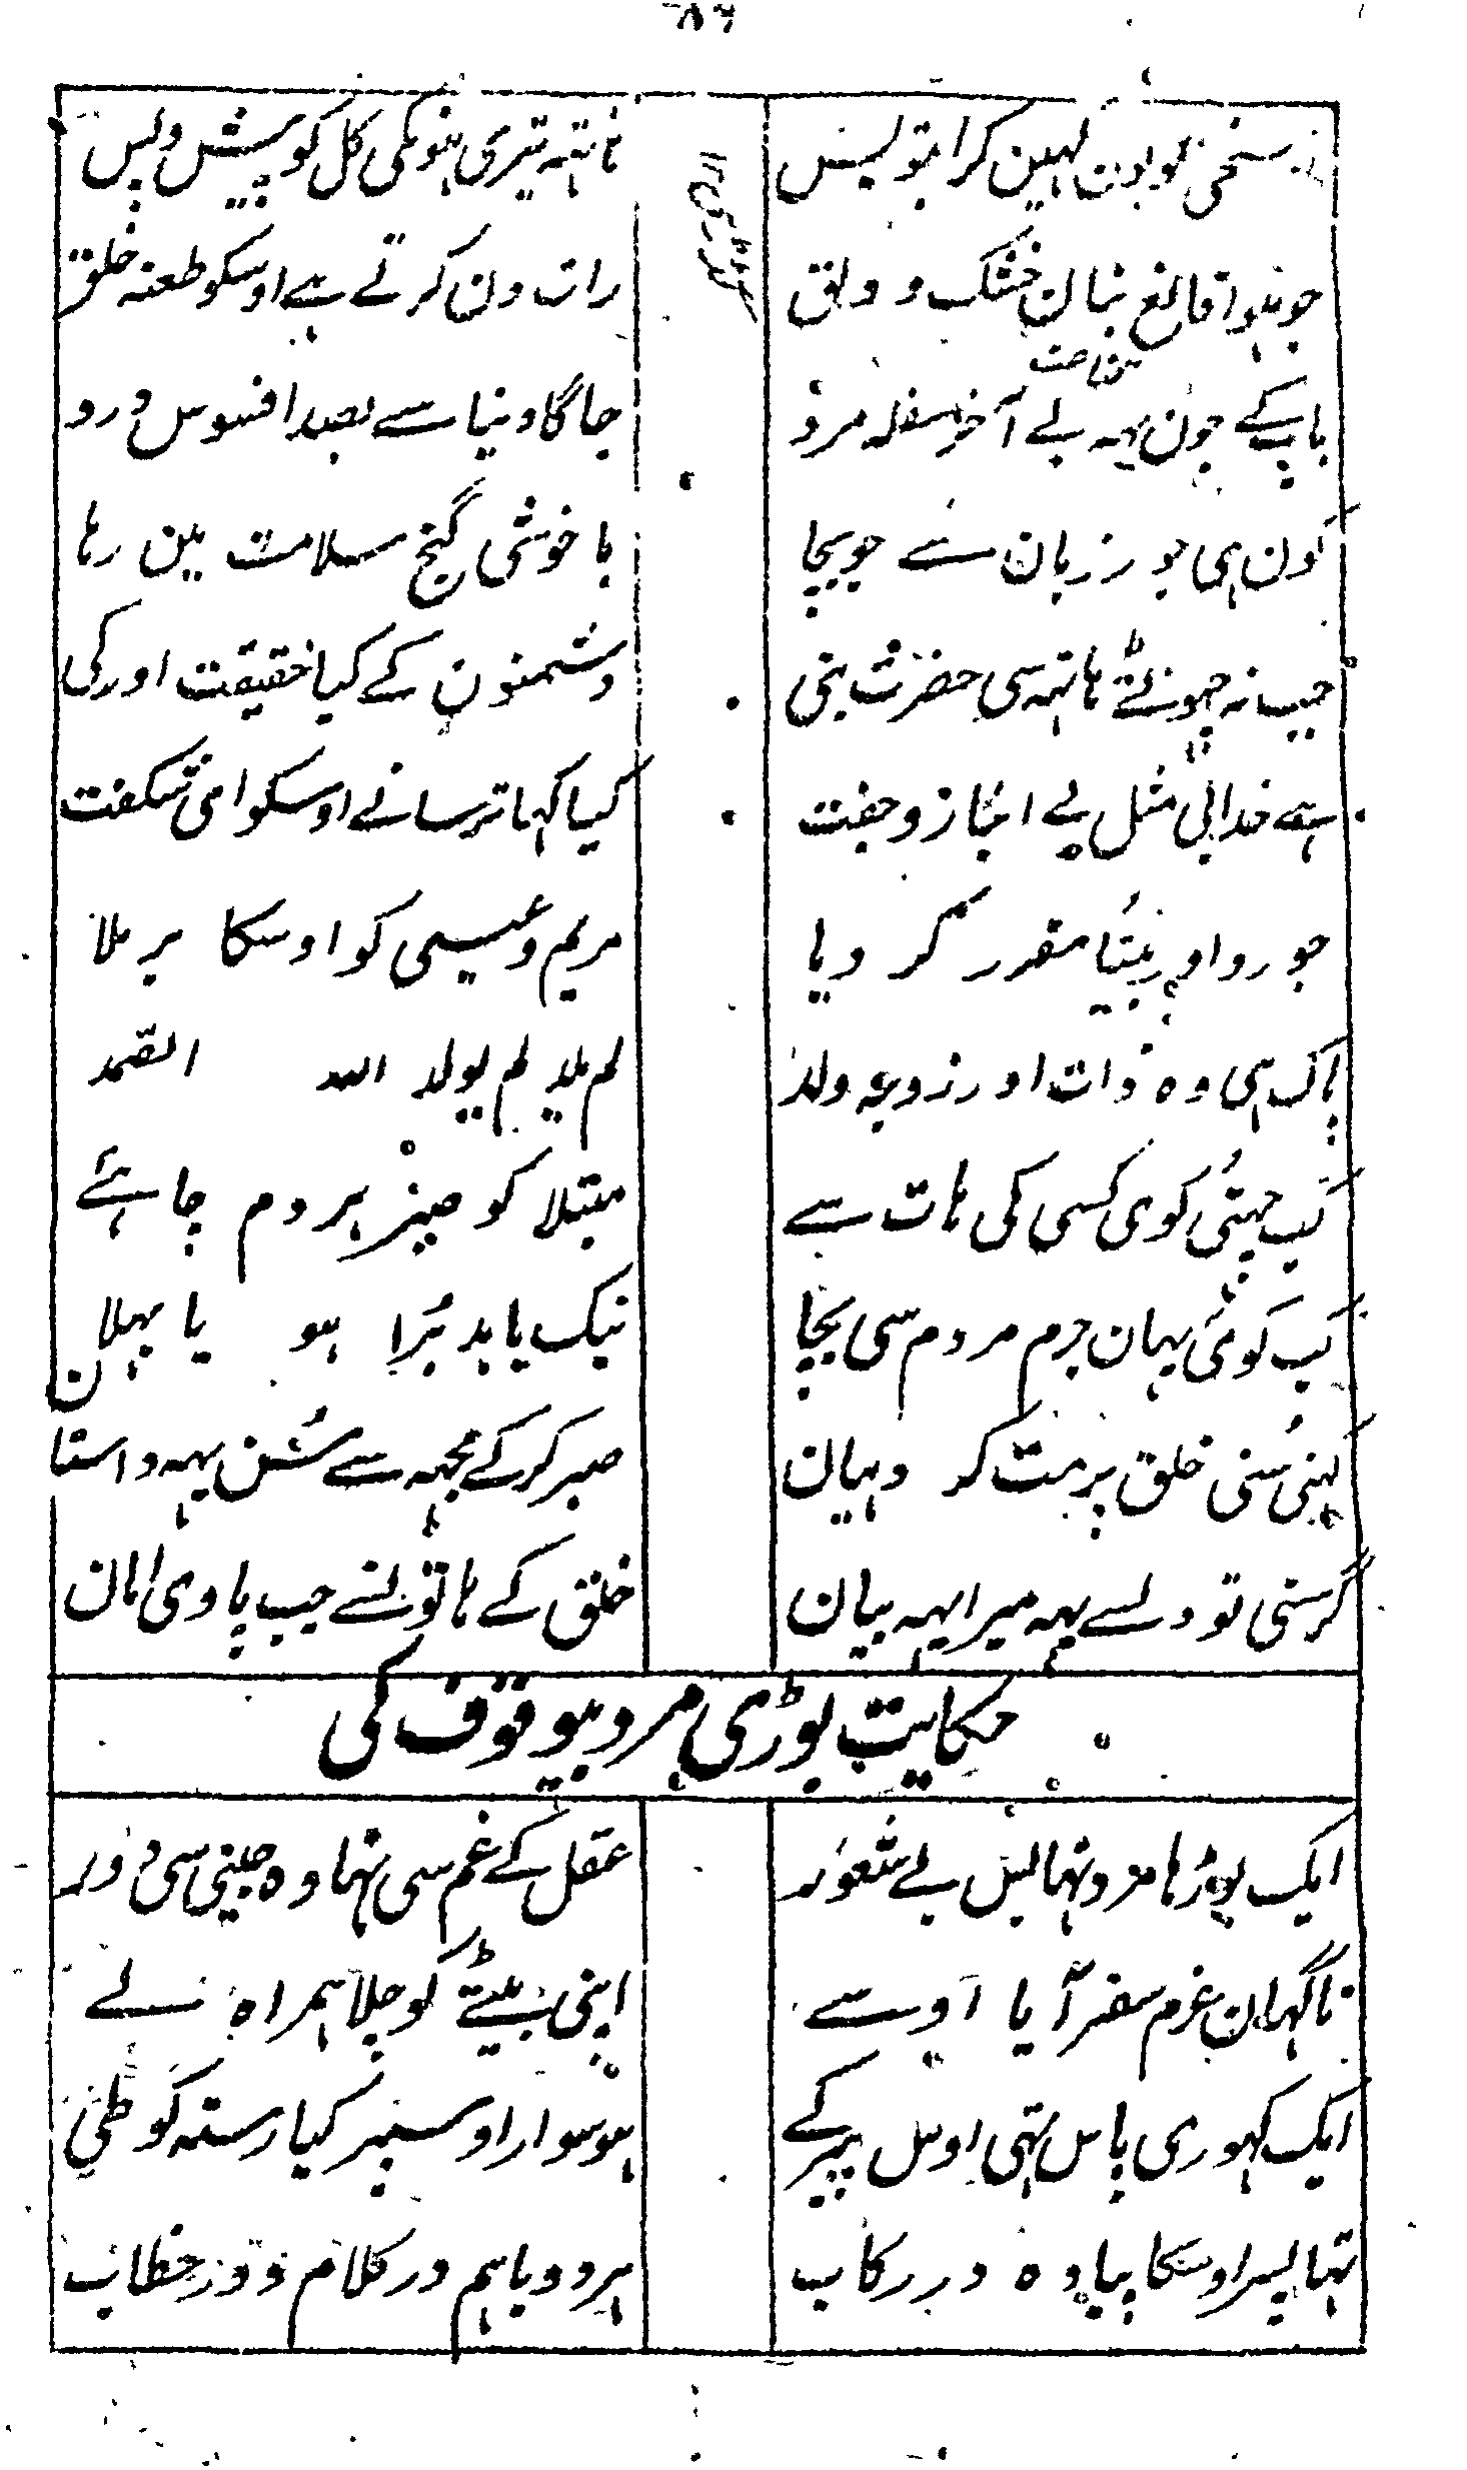 سخی کو بدن کہین کر اتو لبس
ہاتہہ تیری ہنوکی کل کو پیش و پس
جو ہوا قانع بنان خشک و دلق
رات دن کرتے ہے اوسکو طعنہ خلق
قناعت
باپ کے جون یہہ بے آخر سفلہ مرد
جاگا دنیا سے بصد افسوس و درد
کون ہی جور زبان سے جو بچا
باخوشی گنج سلامت مین رہا
جب نہ چہوٹے ہاتہہ سی حضرت نبی
دشمنون کے کیا حقیقت اور کی
ہے خدا بی مثل بے انباز و جفت
کیا کہا ترسانے اوسکو ای شکفت
جورو اور بیٹا مقرر کر دیا
مریم و عیسی کو اوسکا برملا
پاک ہی وہ ذات اور زوجہ ولد
لم یلد لم یولد اللہ الصمد
کب چہتی کوی کسی کی ہات سے
مبتلا کو صبر ہر دم چاہئے
کب کوئی یہان جرم مردم سی بچا
نیک یا بد برا ہو یا بہلا
کہنی سنی خلق پر مت کر دہیان
صبر کر کے مجہہ سے سن یہہ داستان
گر سنی تو دلسے یہہ میرا یہہ بیان
خلق کے ہاتونسے جب پاوی امان
حکایت بوڑی مرد بیوقوف کی
ایک بوڑہا مرد تہا لیس بے شعور
عقل کے غم سی تہا وہ جینی سی دور
ناگہان عزم سفر آیا اوسے
اپنی بیٹے کو چلا ہمراہ لے
ایک کہوری پاس تہی اوس پیر کے
ہو سوار اوسپر کیا رستہ کو طی
تہا پسر اوسکا پیادہ در رکاب
ہر دو باہم در کلام و در خطاب